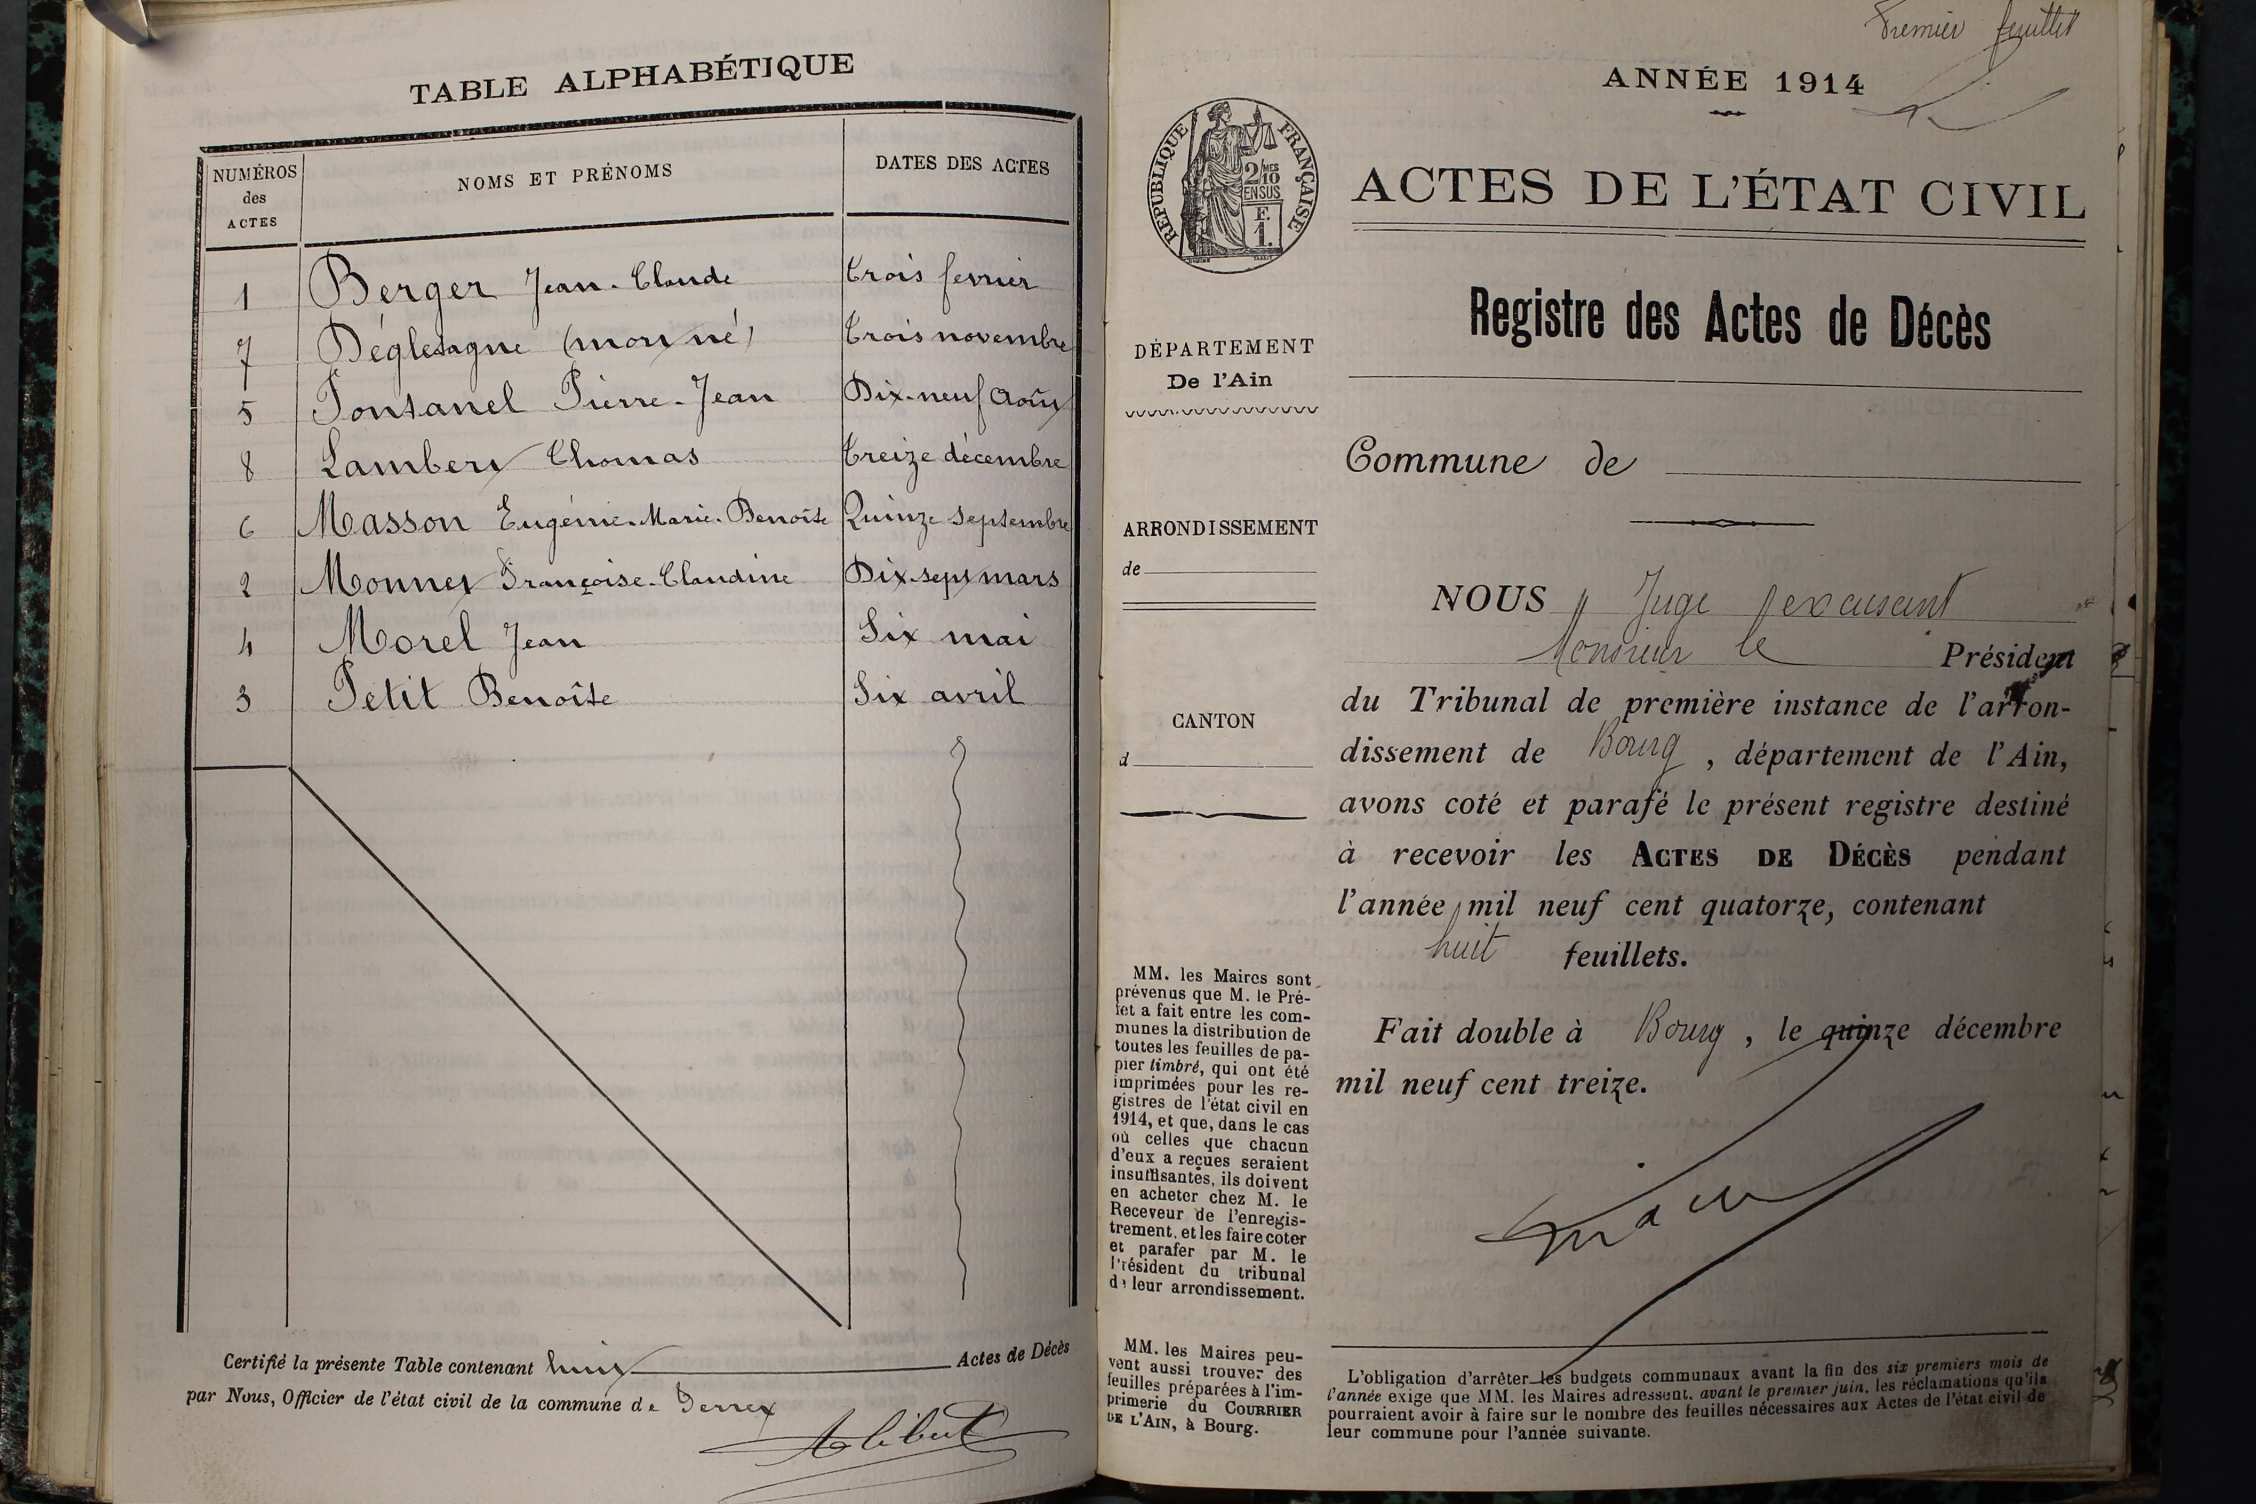 TABLE ALPHABÉTIQUE
NUMÉROS
des
ACTES
NOMS ET PRÉNOMS
DATES DES ACTES
1 Berger Jean-Claude Trois fevrier
7 Dégletagne (mort né) Trois novembre
5 Fontanel Pierre-Jean Dix-neuf Août
8 Lambert Thomas Treize décembre
6 Masson Eugénie-Marie-Benoîte Quinze septembre
2 Monnet Françoise-Claudine Dix-sept mars
4 Morel Jean Six mai
3 Petit Benoîte Six avril
Certifié la présente Table contenant huit Actes de Décès
par Nous, Officier de l'état civil de la commune de Serrex
Premier feuillet
ANNÉE 1914
RÉPUBLIQUE FRANÇAISE
2/MES
10
EN SUS
F.
1.
ACTES DE L'ÉTAT CIVIL
Registre des Actes de Décès
DÉPARTEMENT
De l'Ain
Commune de
ARRONDISSEMENT
de
CANTON
d
NOUS Juge excusant
Monsieur le Président
du Tribunal de première instance de l'arron-
dissement de Bourg, département de l'Ain,
avons coté et parafé le présent registre destiné
à recevoir les ACTES DE DÉCÈS pendant
l'année mil neuf cent quatorze, contenant
huit feuillets.
Fait double à Bourg, le quinze décembre
mil neuf cent treize.
MM. les Maires sont
prévenus que M. le Pré-
fet a fait entre les com-
munes la distribution de
toutes les feuilles de pa-
pier timbré, qui ont été
imprimées pour les re-
gistres de l'état civil en
1914, et que, dans le cas
où celles que chacun
d'eux a reçues seraient
insuffisantes, ils doivent
en acheter chez M. le
Receveur de l'enregis-
trement, et les faire coter
et parafer par M. le
Président du tribunal
de leur arrondissement.
MM. les Maires peu-
vent aussi trouver des
feuilles préparées à l'im-
primerie du COURRIER
DE L'AIN, à Bourg.
L'obligation d'arrêter les budgets communaux avant la fin des six premiers mois de
l'année exige que MM. les Maires adressent, avant le premier juin, les réclamations qu'ils
pourraient avoir à faire sur le nombre des feuilles nécessaires aux Actes de l'état civil de
leur commune pour l'année suivante.